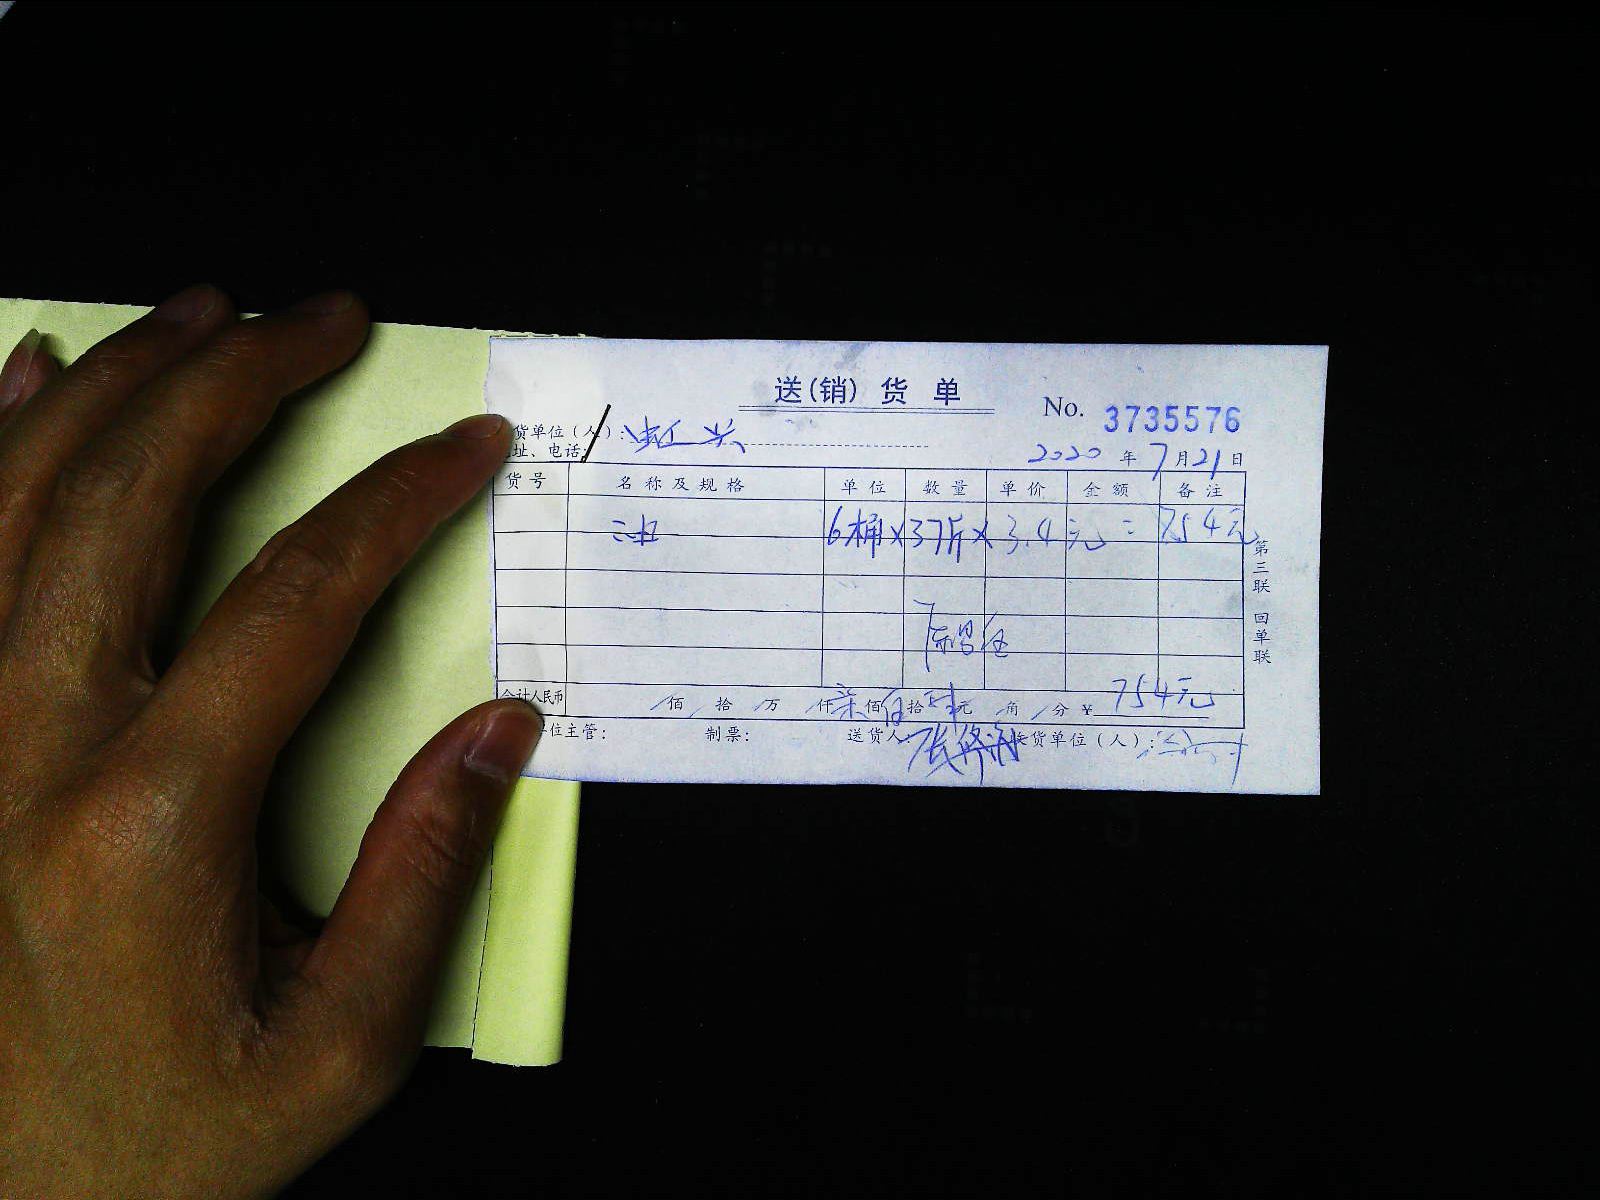 送(销)货单
No. 3735576
货单位（人）：虹兴
址、电话：
2020 年 7 月 21 日
货号 名称及规格 单位 数量 单价 金额 备注
6桶×37斤×3.4元=754元
第三联 回单联
合计人民币 佰 拾 万 仟 柒 佰 伍 拾 肆 元 角 分 ¥ 754元
单位主管： 制票： 送货人： 收货单位（人）：